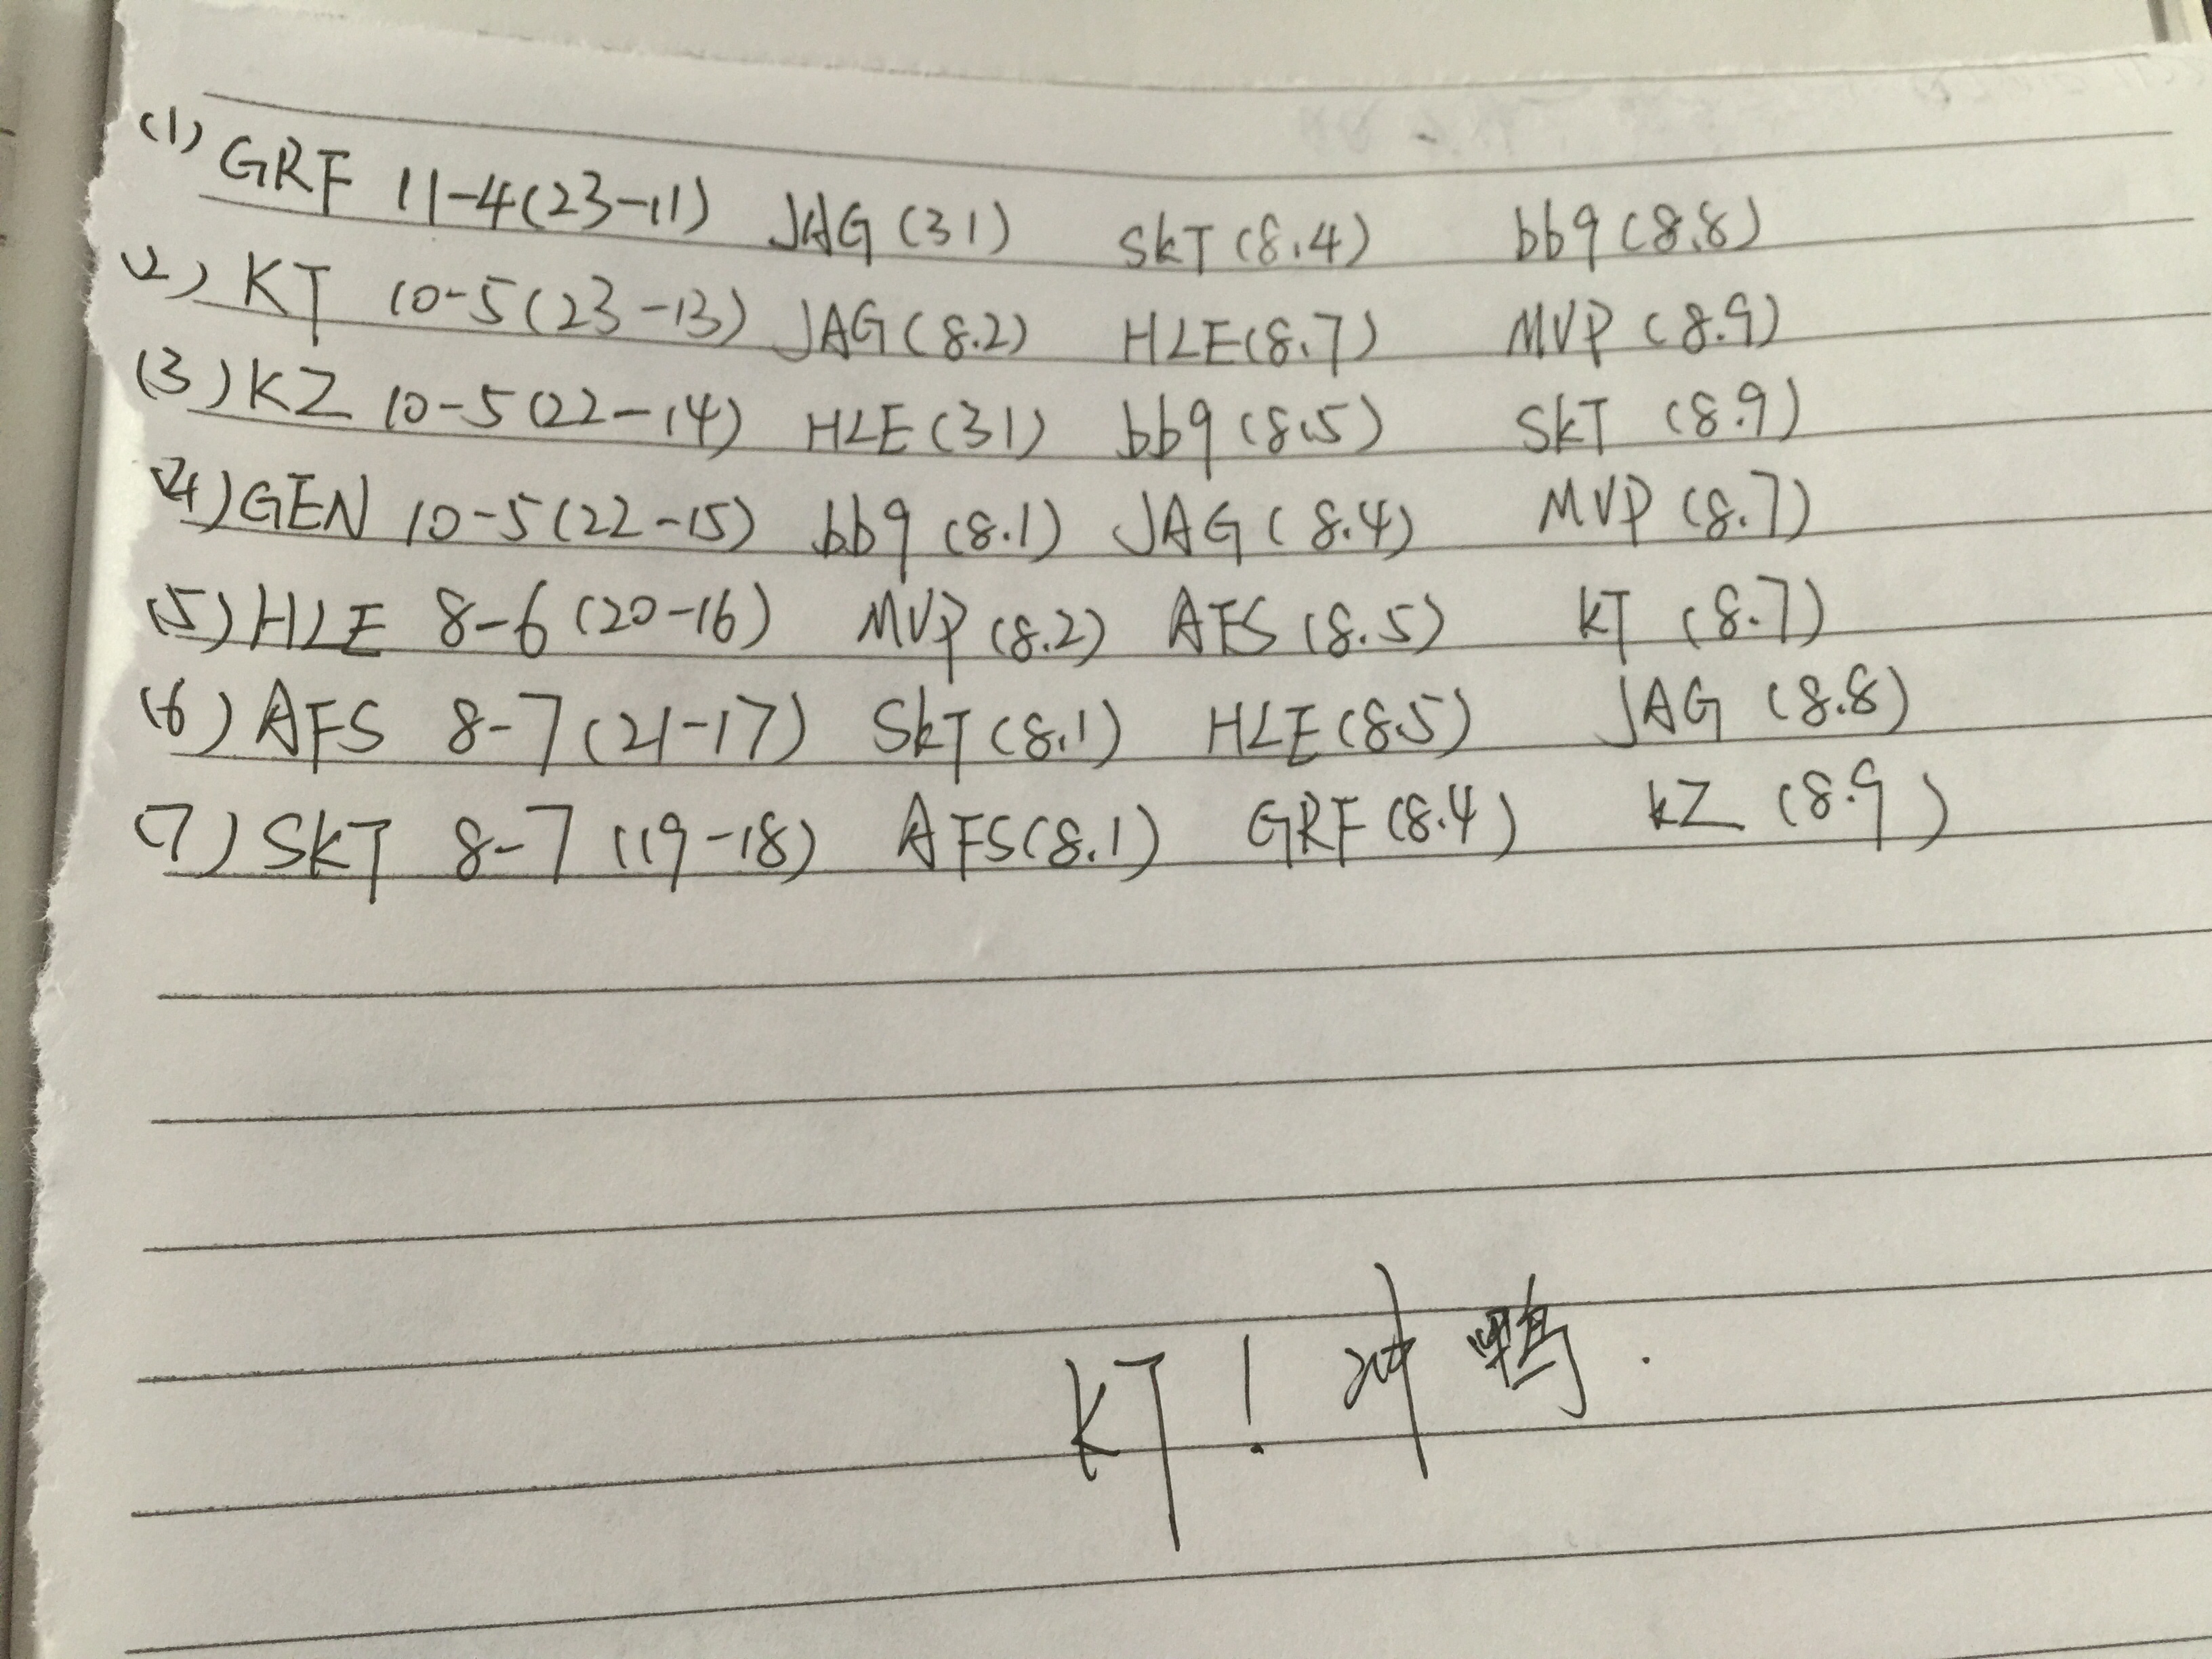 (1) GRF 11-4(23-11) JAG(31) SKT(8.4) bbq(8.8)
(2) KT 10-5(23-13) JAG(8.2) HLE(8.7) MVP(8.9)
(3) KZ 10-5(22-14) HLE(31) bbq(8.5) SKT(8.9)
(4) GEN 10-5(22-15) bbq(8.1) JAG(8.4) MVP(8.7)
(5) HLE 8-6(20-16) MVP(8.2) AFS(8.5) KT(8.7)
(6) AFS 8-7(21-17) SKT(8.1) HLE(8.5) JAG(8.8)
(7) SKT 8-7(19-18) AFS(8.1) GRF(8.4) KZ(8.9)
KT 加